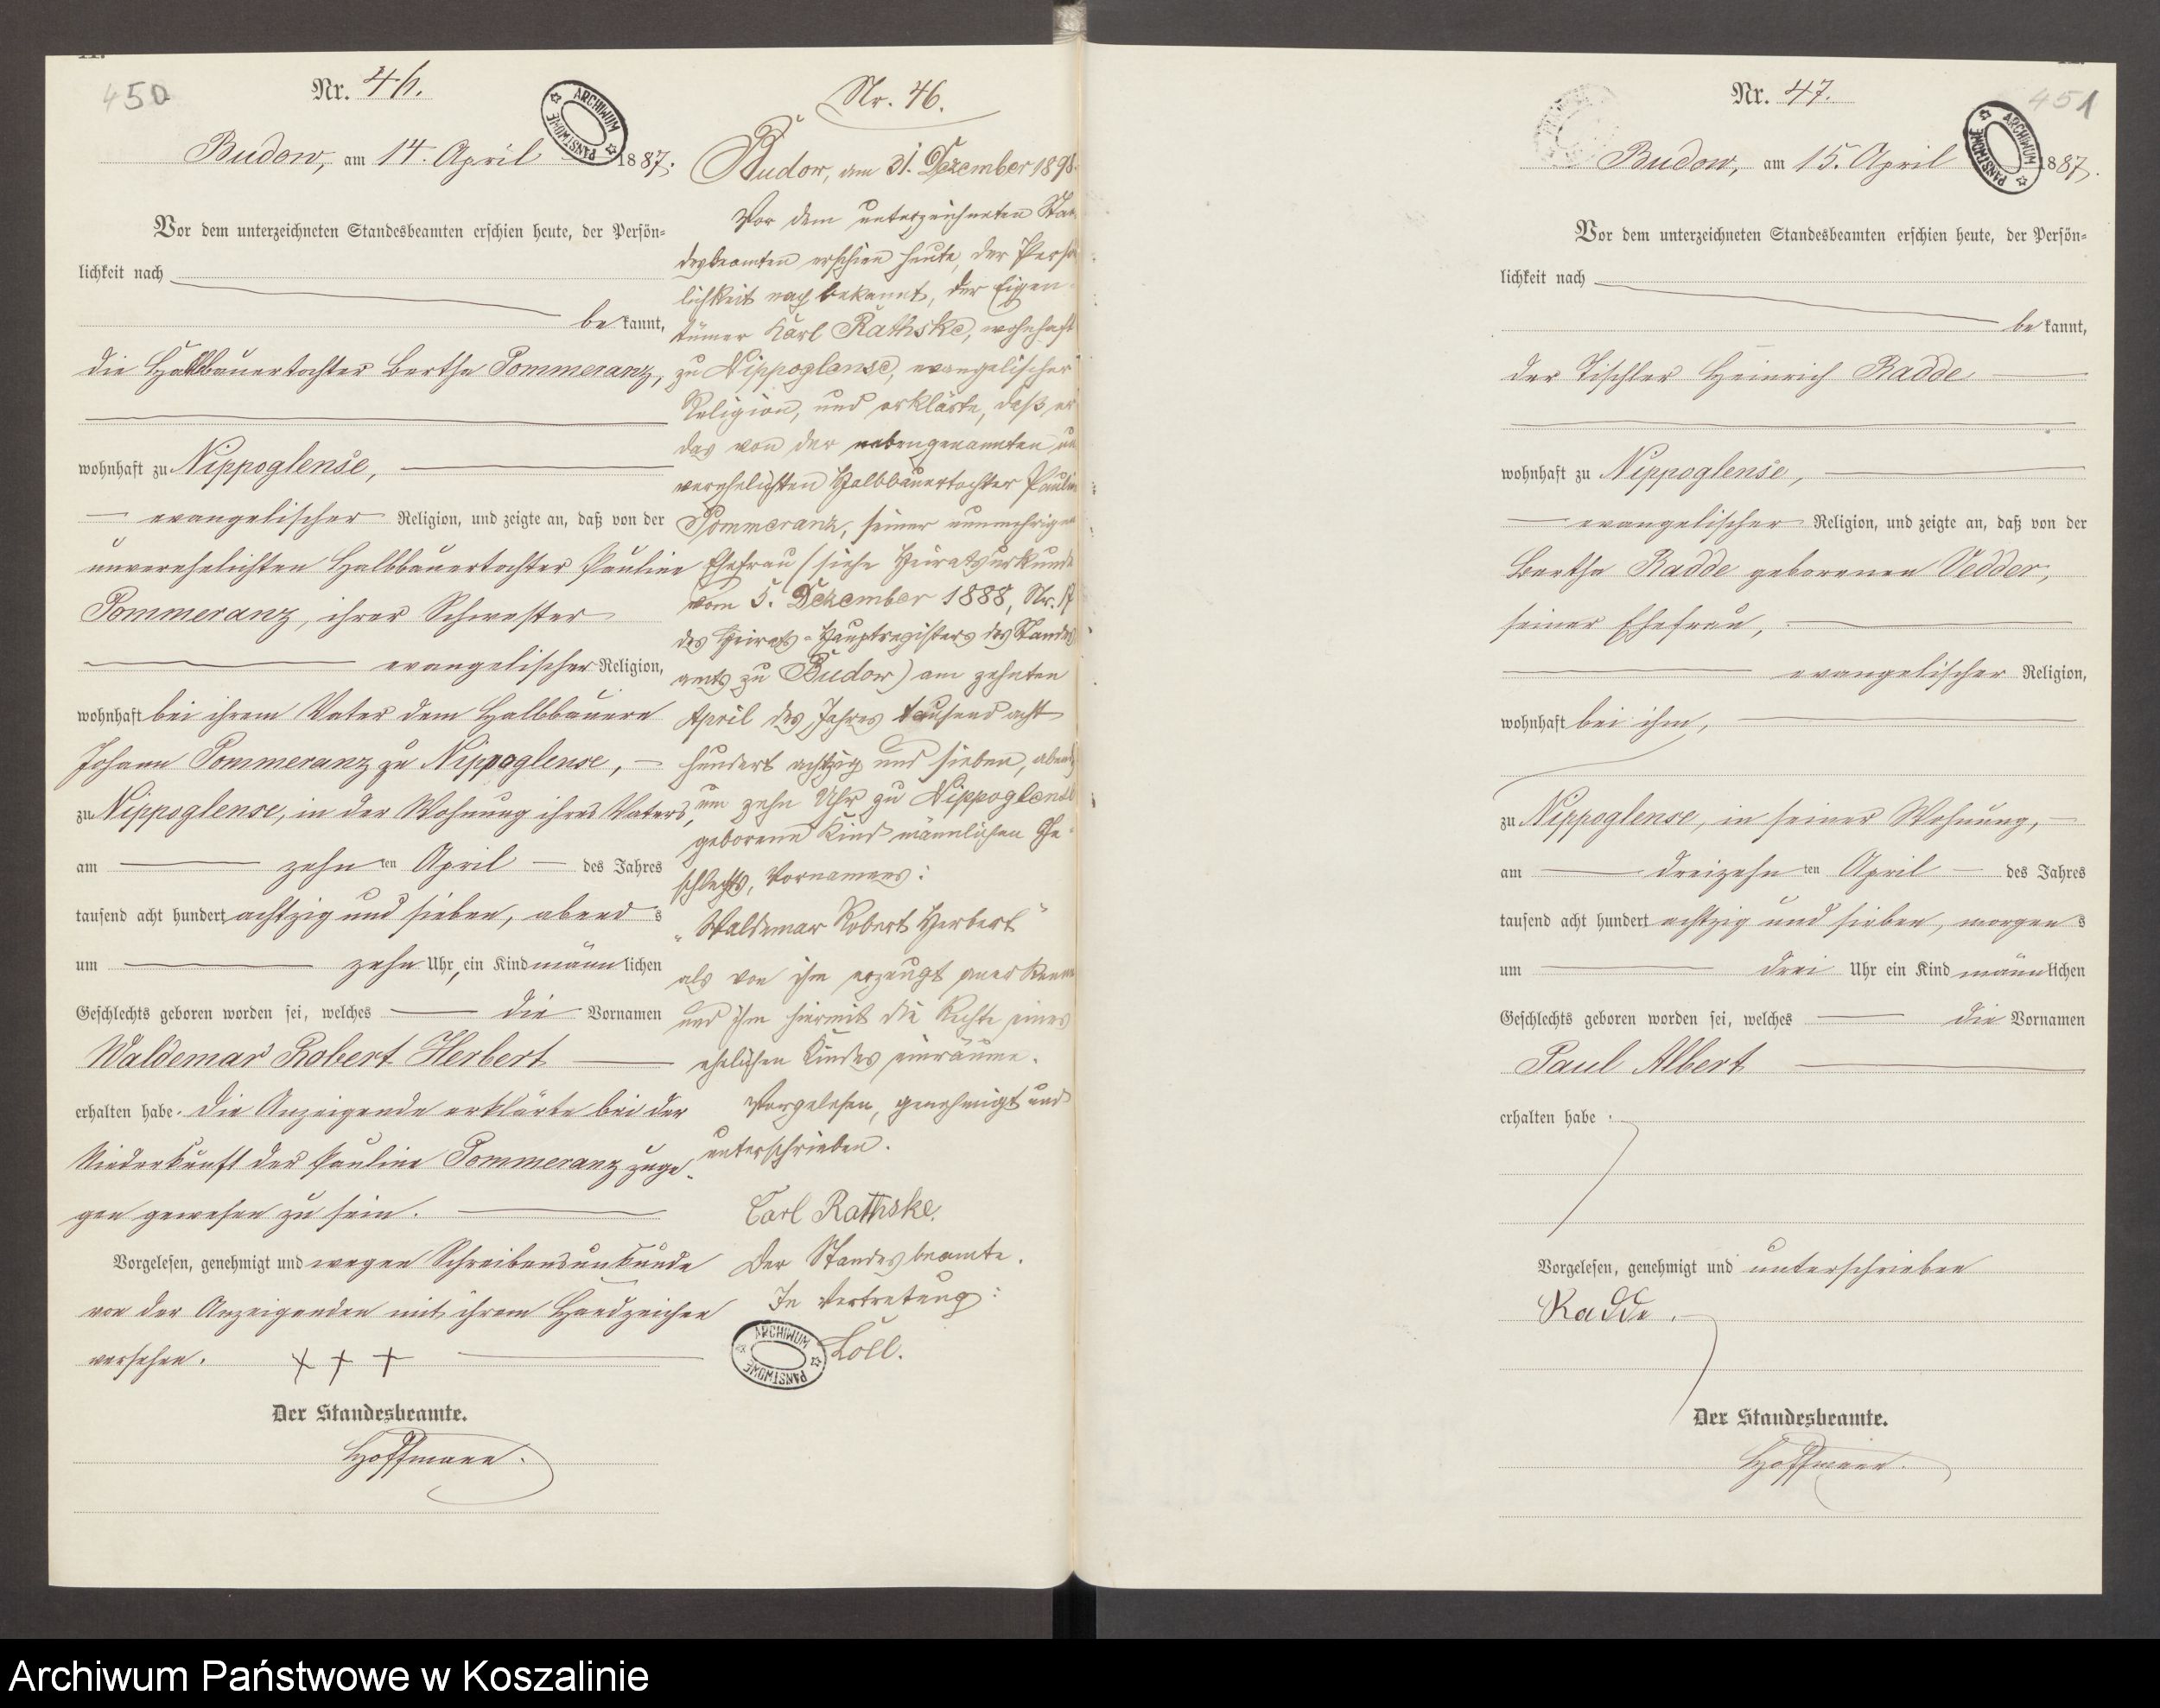 450
Nr. 46.
ARCHIWUM PAŃSTWOWE
Budow, am 14. April 1887.
Vor dem unterzeichneten Standesbeamten erschien heute, der Persön=
lichkeit nach
bekannt,
die Halbbauertochter Bertha Pommeranz,
wohnhaft zu Nippoglense,
evangelischer Religion, und zeigte an, daß von der
unverehelichten Halbbauertochter Pauline
Pommeranz, ihrer Schwester
evangelischer Religion,
wohnhaft bei ihrem Vater dem Halbbauern
Johann Pommeranz zu Nippoglense,
zu Nippoglense, in der Wohnung ihres Vaters,
am zehnten April des Jahres
tausend acht hundert achtzig und sieben, abends
um zehn Uhr, ein Kind männlichen
Geschlechts geboren worden sei, welches die Vornamen
Waldemar Robert Herbert
erhalten habe. Die Anzeigende erklärte bei der
Niederkunft der Pauline Pommeranz zuge-
gen gewesen zu sein.
Vorgelesen, genehmigt und wegen Schreibensunkunde
von der Anzeigenden mit ihrem Handzeichen
versehen. + + +
Der Standesbeamte.
Hoffmann.
Nr. 46.
Budow, am 31. Dezember 1898.
Vor dem unterzeichneten Stan
desbeamten erschien heute, der Persön
lichkeit nach bekannt, der Eigen-
tümer Karl Rathske, wohnhaft
zu Nippoglense, evangelischer
Religion, und erklärte, daß er
das von der nebengenannten un
verehelichten Halbbauertochter Pauline
Pommeranz, seiner nunmehrigen
Ehefrau (siehe Heiratsurkunde
vom 5. Dezember 1888, Nr. 17
des Heirats-Hauptregisters des Standes
amts zu Budow) am zehnten
April des Jahres tausend acht
hundert achtzig und sieben, abends
um zehn Uhr zu Nippoglense
geborene Kind männlichen Ge-
schlechts, Vornamens:
"Waldemar Robert Herbert"
als von ihm erzeugt anerkenne
und ihm hiermit die Rechte eines
ehelichen Kindes einräume.
Vorgelesen, genehmigt und
unterschrieben.
Carl Rathske.
Der Standesbeamte.
In Vertretung:
Löll.
ARCHIWUM PAŃSTWOWE
451
Nr. 47.
ARCHIWUM PAŃSTWOWE
Budow, am 15. April 1887.
Vor dem unterzeichneten Standesbeamten erschien heute, der Persön=
lichkeit nach
bekannt,
der Tischler Heinrich Radde
wohnhaft zu Nippoglense,
evangelischer Religion, und zeigte an, daß von der
Bertha Radde geborenen Vedder,
seiner Ehefrau,
evangelischer Religion,
wohnhaft bei ihm,
zu Nippoglense, in seiner Wohnung,
am dreizehnten April des Jahres
tausend acht hundert achtzig und sieben, morgens
um drei Uhr ein Kind männlichen
Geschlechts geboren worden sei, welches die Vornamen
Paul Albert
erhalten habe.
Vorgelesen, genehmigt und unterschrieben
Radde.
Der Standesbeamte.
Hoffmann.
Archiwum Państwowe w Koszalinie